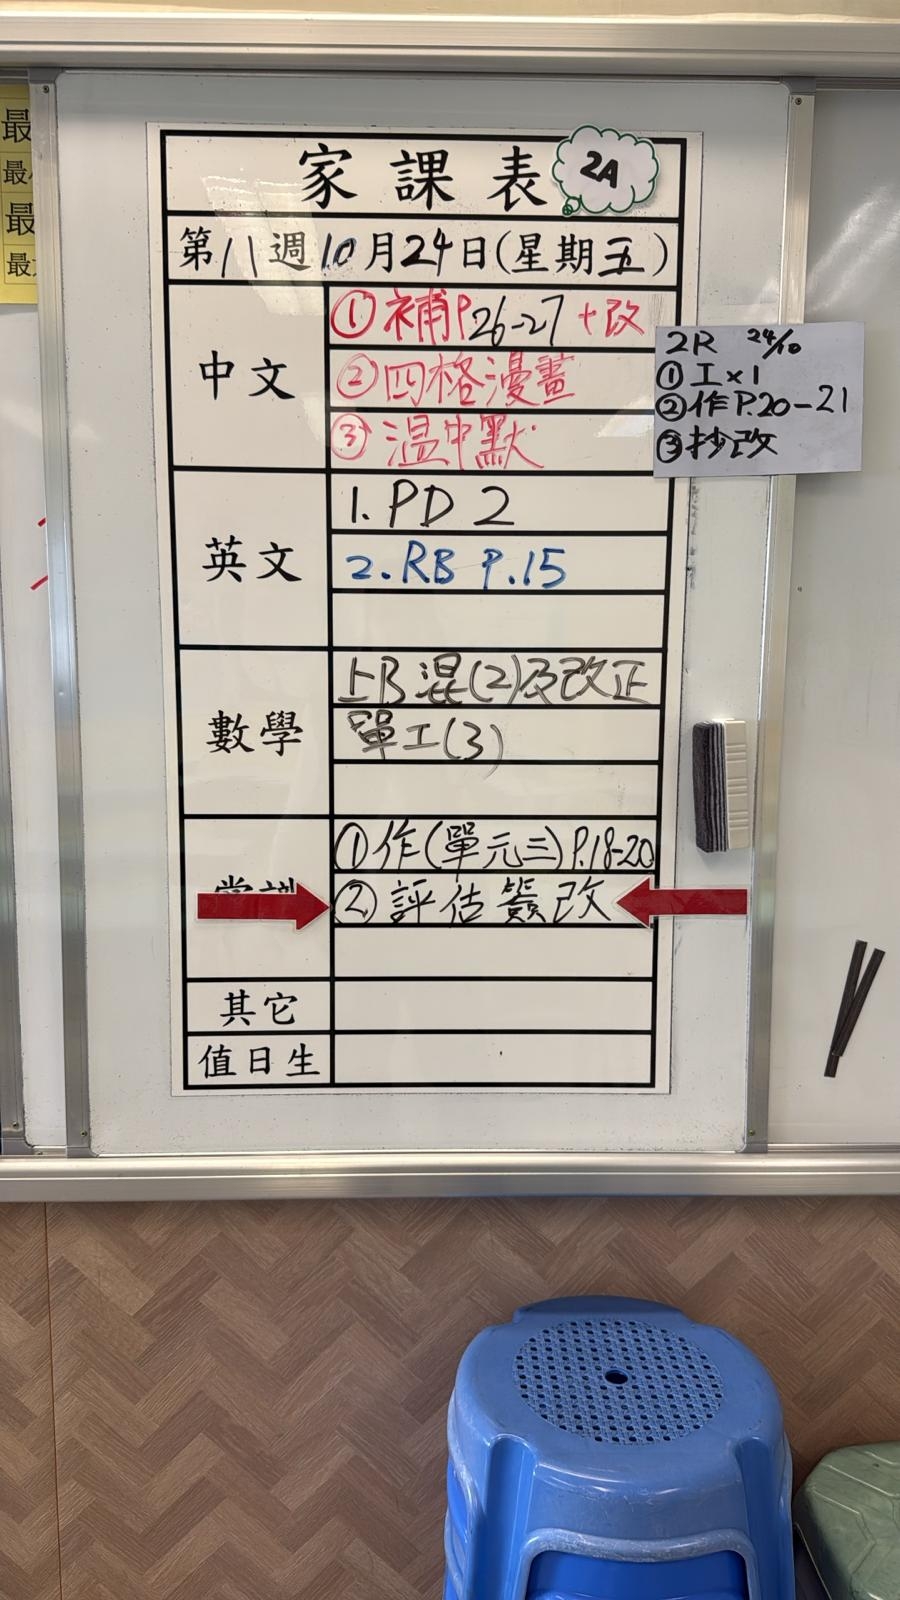 最
最
最
最
家課表 2A
第11週10月24日(星期五)
中文
①補P26-27+改
②四格漫畫
③溫中默
2R 24/10
①工×1
②作P.20-21
③抄改
英文
1. PD 2
2. RB P.15
數學
上B混(2)及改正
單工(3)
常識
①作(單元三)P.18-20
②評估簽改
其它
值日生